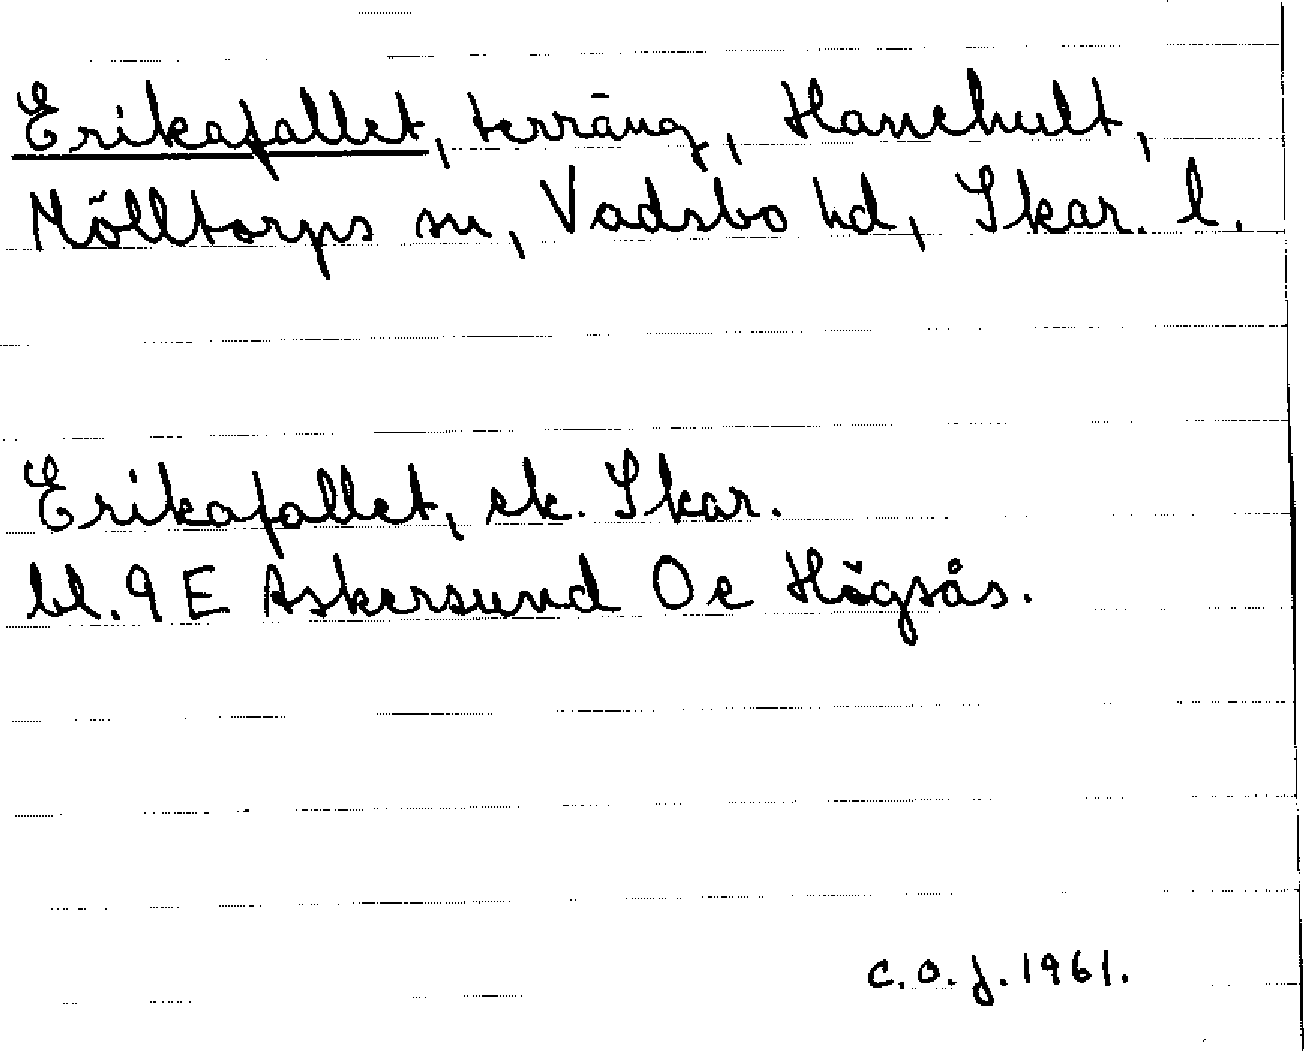 Erikafallet, terräng, Hanehult,
Mölltorps sn, Vadsbo hd, Skar. l.
Erikafallet, ek. Skar.
bl. 9 E Askersund Oe Högsås.
C.O.J. 1961.